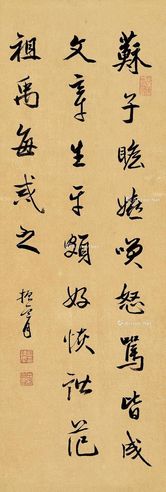 蘇子瞻嬉笑怒罵皆成
文章生平頗好恢詼范
祖禹每戒之